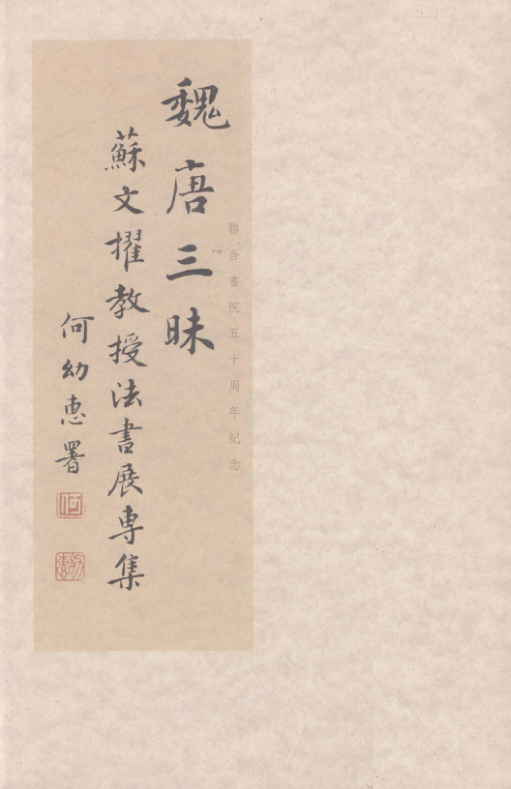 聯合書院五十周年紀念
魏唐三昧
蘇文擢教授法書展專集
何幼惠署